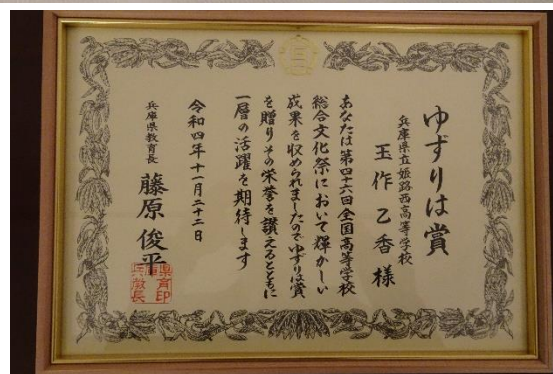 ゆずりは賞
兵庫県立姫路西高等学校
玉作乙香様
あなたは第四十六回全国高等学校
総合文化祭において輝かしい
成果を収められましたのでゆずりは賞
を贈りその栄誉を讃えるとともに
一層の活躍を期待します
令和四年十一月二十二日
兵庫県教育長 藤原俊平